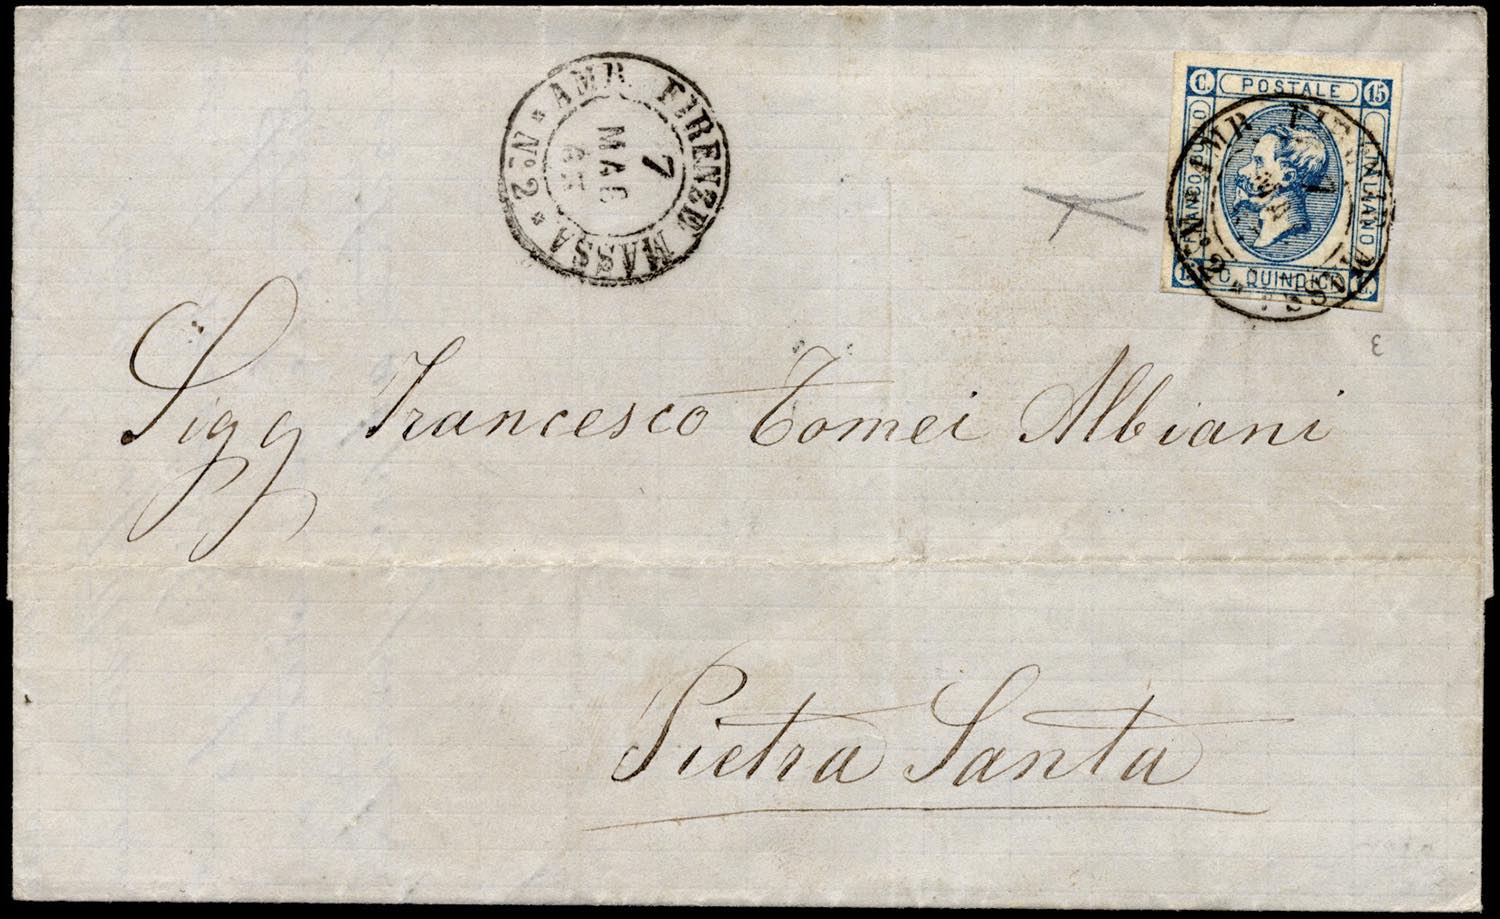 AMB. FIRENZE MASSA * N.º 2 *
7
MAG
63
C. POSTALE 15
FRANCO BOLLO
ITALIANO
C. QUINDICI
Sigg Francesco Tomei Albiani
Pietra Santa